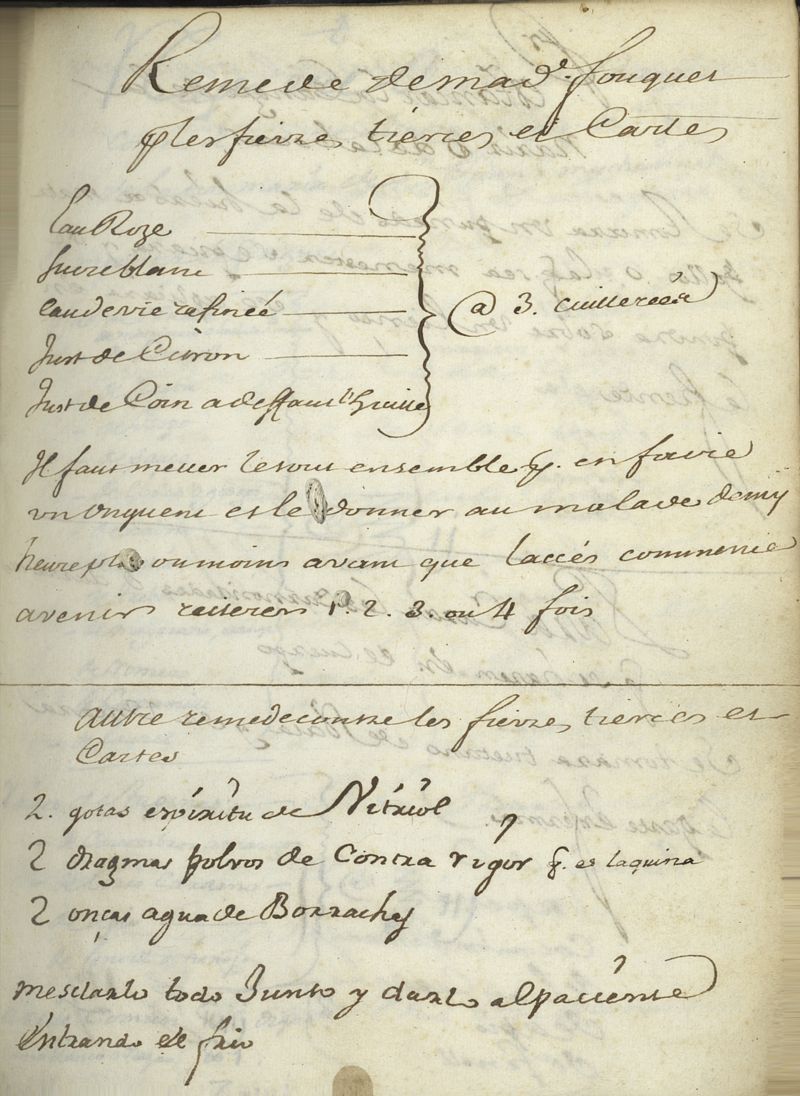 Remede de mad. fouquet
p les fievres tierces et Cartes
Eau Roze
sucre blanc
eau de vie rafineé
Just de Citron
Just de Coin
@ 3. cuillereés
Il faut meller le tout ensemble q. en forme
un onguent et le donner au malade demy
heure plus ou moins avant que l'accés commence
a venir reiterer 1. 2. 3. ou 4 fois
autre remede contre les fievres tierces et
Cartes
2. gotas espiritu de Nitriol
2 dragmas polvos de Contra rigor q. es laquina
2 onças agua de Borrachas
mesclarlo todo Junto y darlo al paciente
entrando el frio